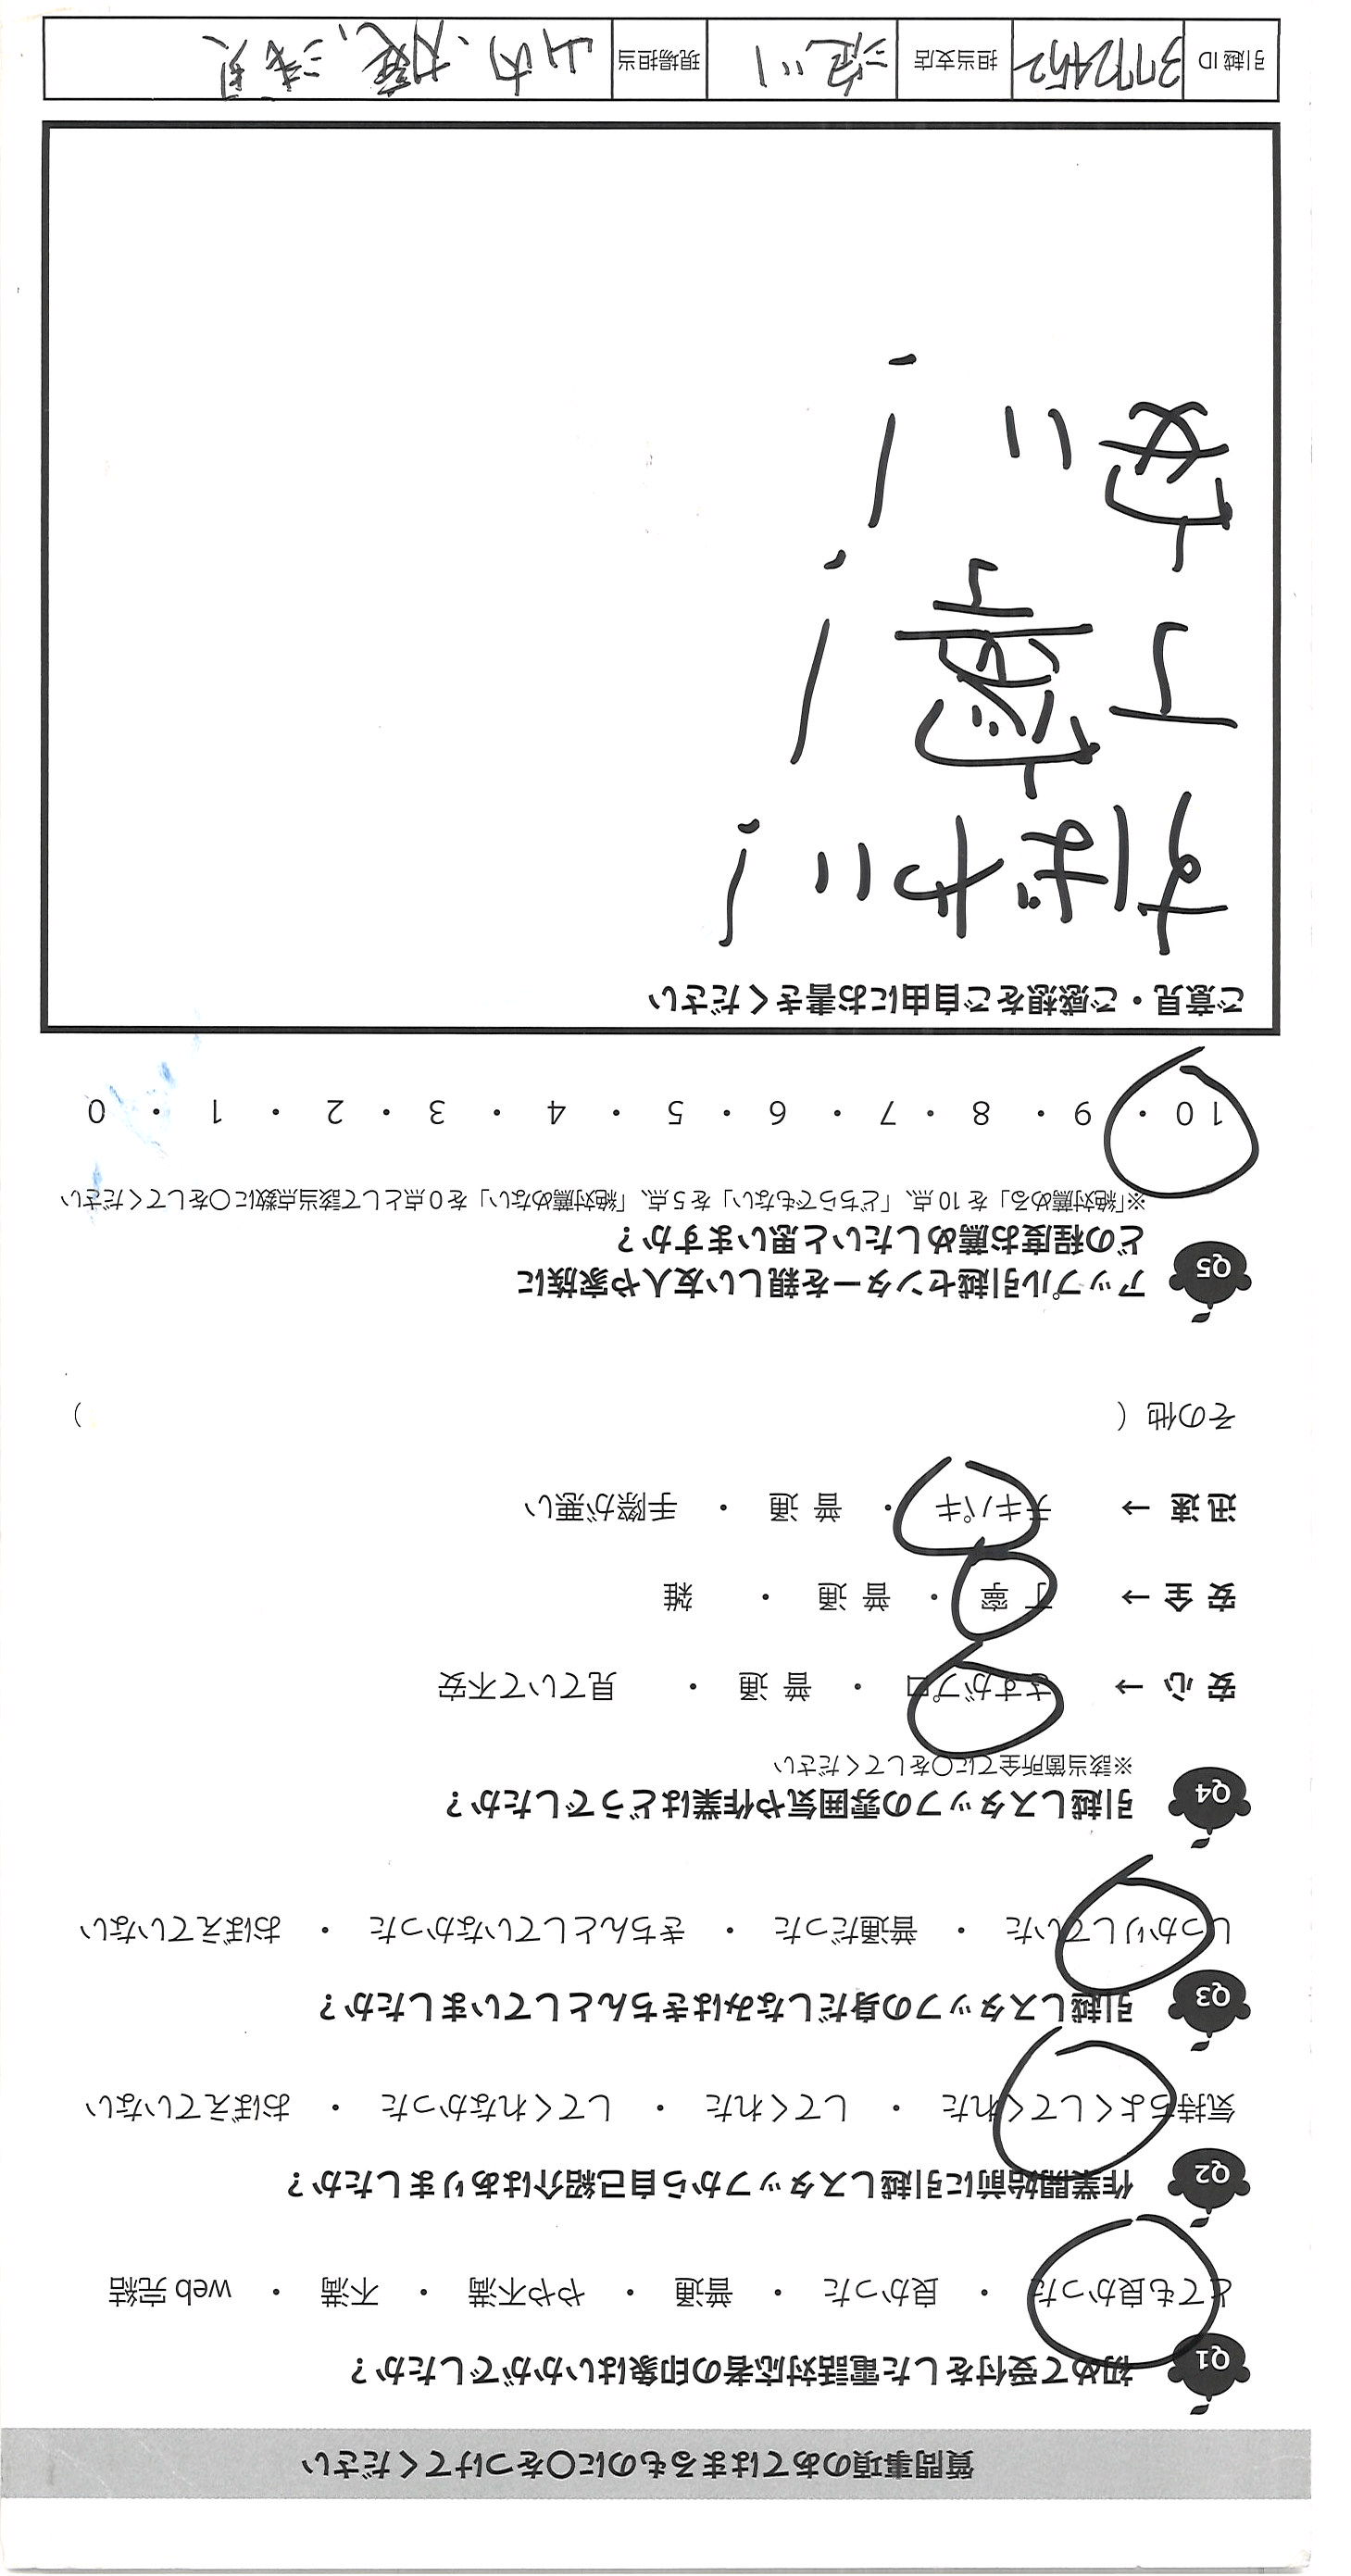 質問事項のあてはまるものに〇をつけてください
Q1 初めて受付をした電話対応者の印象はいかがでしたか？
とても良かった ・ 良かった ・ 普通 ・ やや不満 ・ 不満 ・ web 完結
Q2 作業開始前に引越しスタッフから自己紹介はありましたか？
気持ちよくしてくれた ・ してくれた ・ してくれなかった ・ おぼえていない
Q3 引越しスタッフの身だしなみはきちんとしていましたか？
しっかりしていた ・ 普通だった ・ きちんとしていなかった ・ おぼえていない
Q4 引越しスタッフの雰囲気や作業はどうでしたか？
※該当箇所全てに〇をしてください
安心 → さすがプロ ・ 普通 ・ 見ていて不安
安全 → 丁寧 ・ 普通 ・ 雑
迅速 → テキパキ ・ 普通 ・ 手際が悪い
その他（ ）
Q5 アップル引越センターを親しい友人や家族に
どの程度お薦めしたいと思いますか？
※「絶対薦める」を10点、「どちらでもない」を5点、「絶対薦めない」を0点として該当点数に〇をしてください
10 ・ 9 ・ 8 ・ 7 ・ 6 ・ 5 ・ 4 ・ 3 ・ 2 ・ 1 ・ 0
ご意見・ご感想をご自由にお書きください
すばやい！
丁寧！
安い！
引越ID 3772452 担当支店 淀川 現場担当 山内、浅見